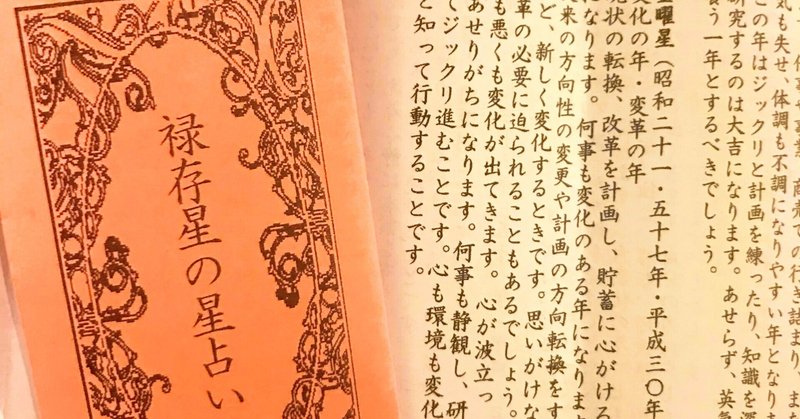 禄存星の星占い
仕事や事業、商売での行き詰まり、ま
気も失せ、体調も不調になりやすい年となり
この年はジックリと計画を練ったり、知識を深
研究するのは大吉になります。あせらず、英気
う一年とするべきでしょう。
曜星（昭和二十一・五十七年・平成三〇年
変化の年・変革の年
現状の転換、改革を計画し、貯蓄に心がける
になります。何事も変化のある年になりま
来の方向性の変更や計画の方向転換をす
ど、新しく変化するときです。思いがけな
革の必要に迫られることもあるでしょう。
も悪くも変化が出てきます。心が波立っ
あせりがちになります。何事も静観し、研
てジックリ進むことです。心も環境も変化
と知って行動することです。